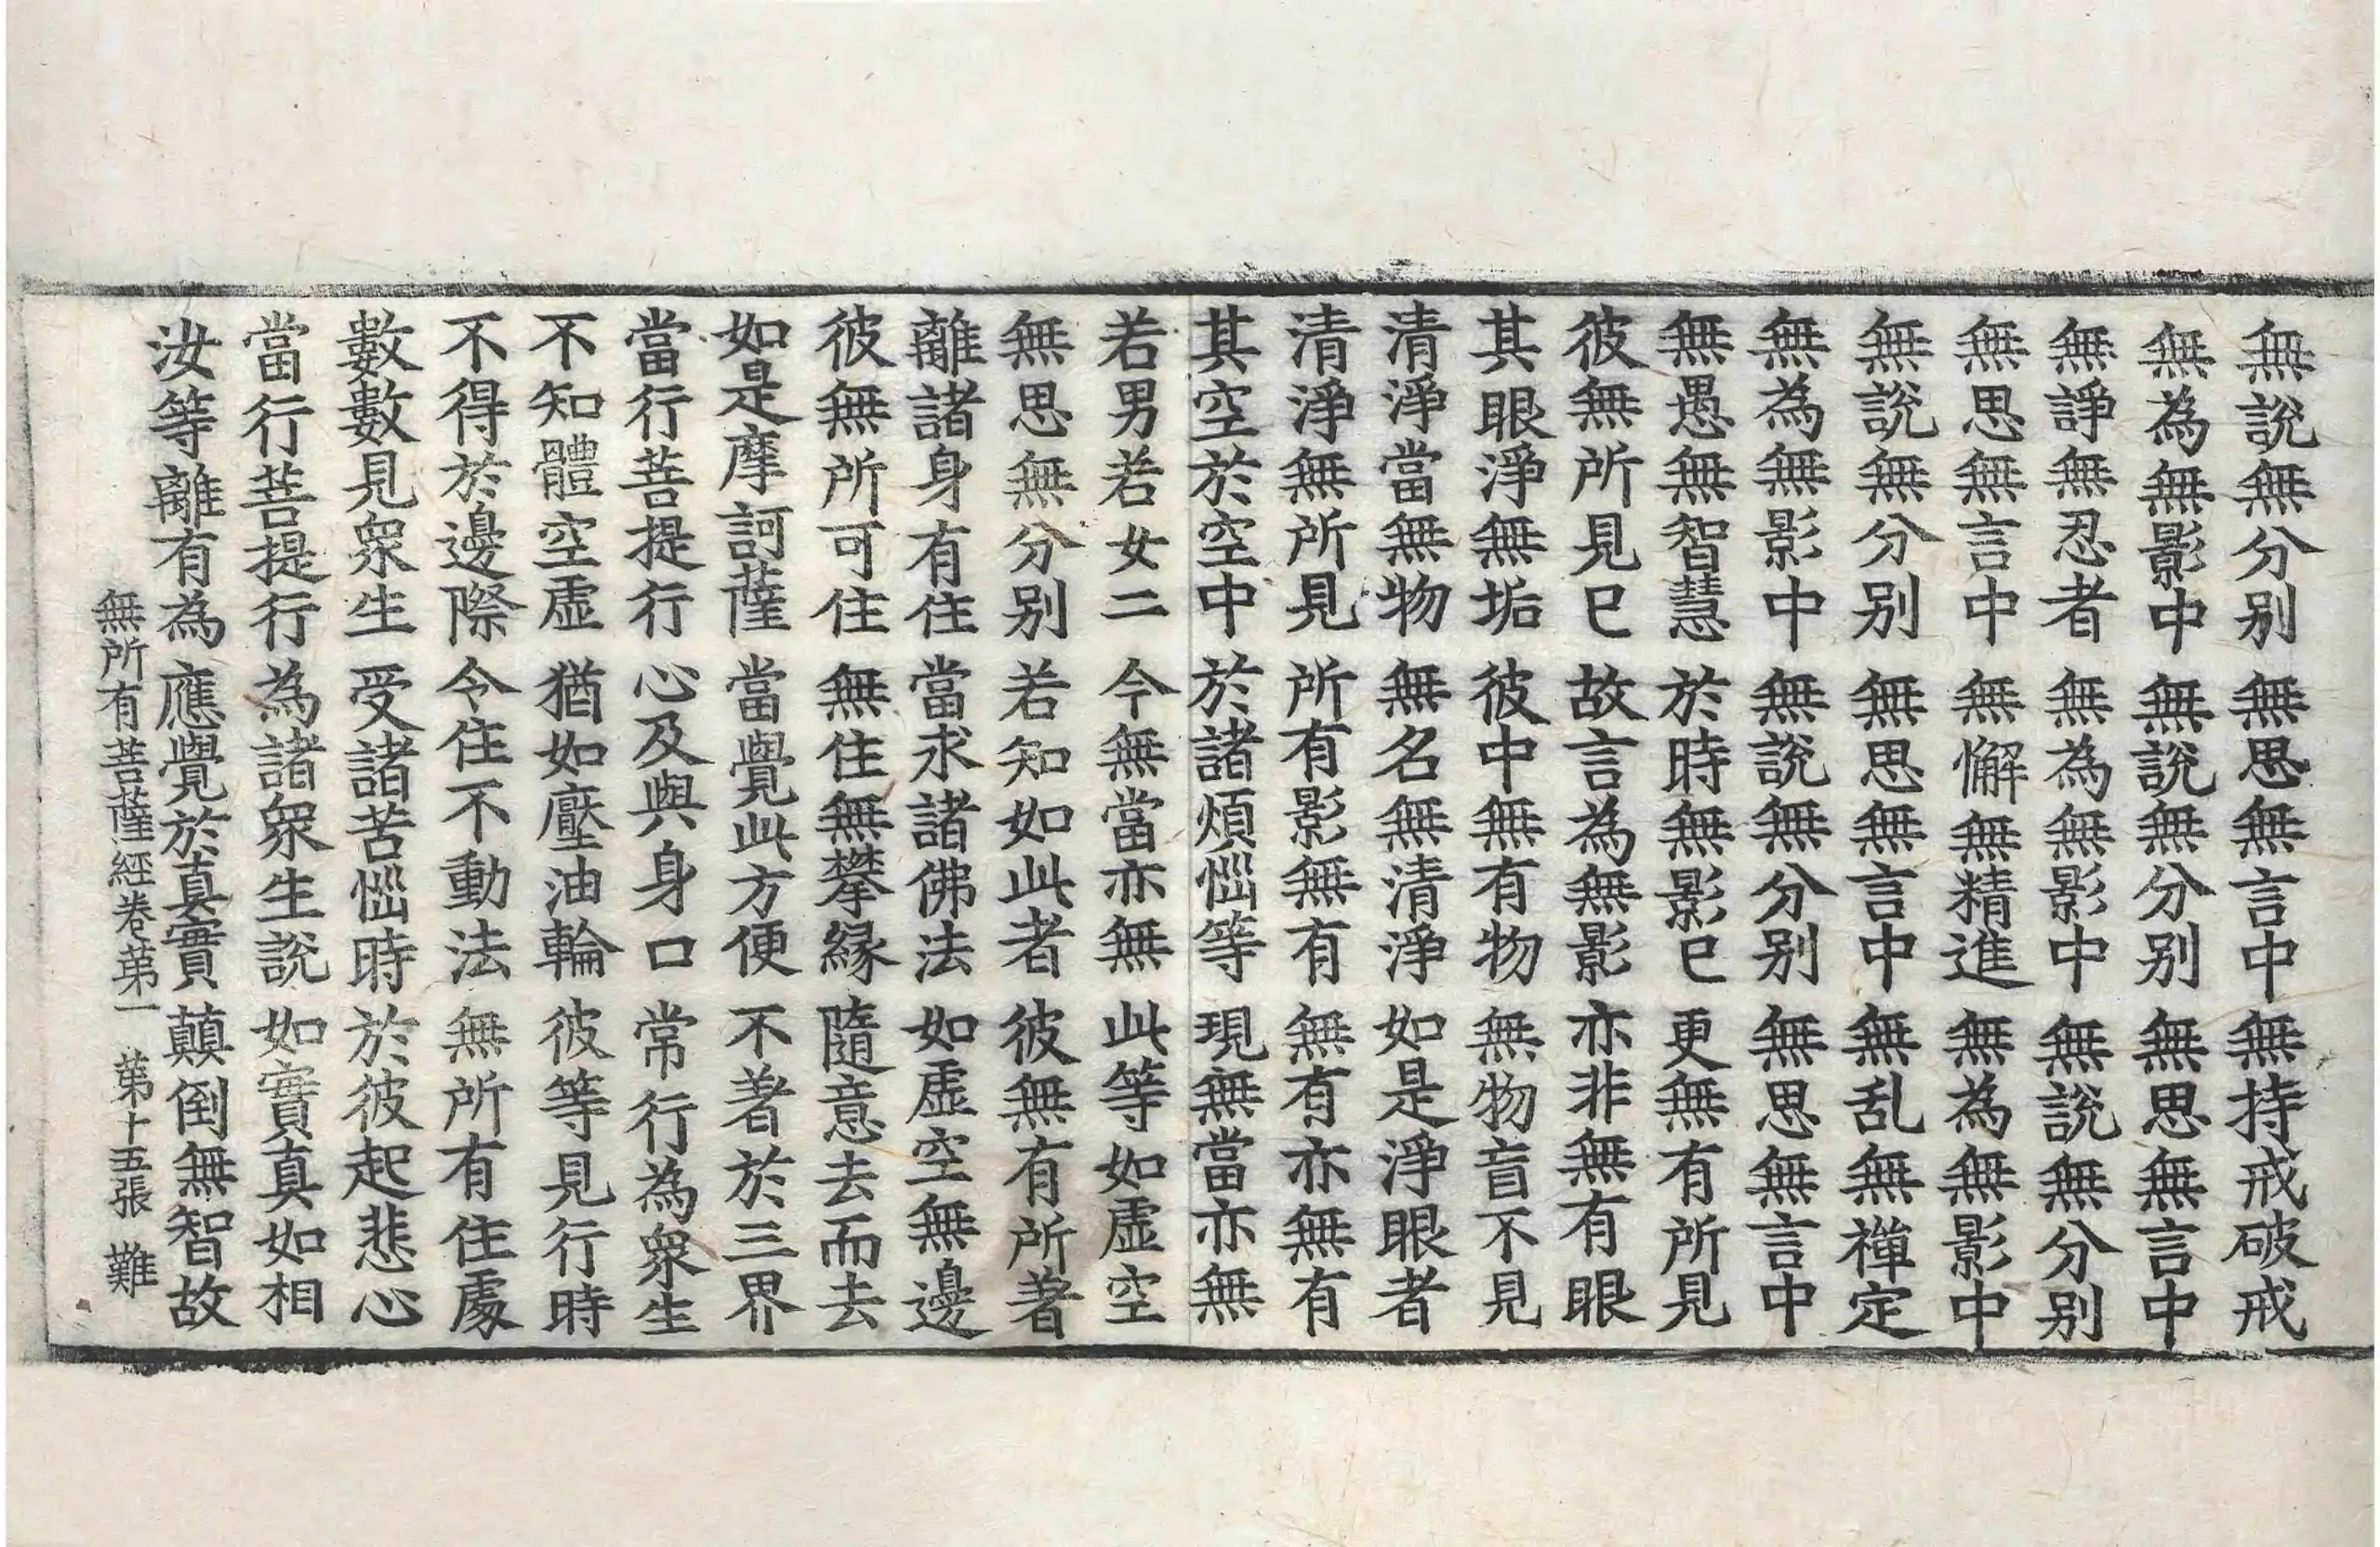 無說無分別 無思無言中 無持戒破戒
無為無影中 無說無分別 無思無言中
無諍無忍者 無為無影中 無說無分別
無思無言中 無懈無精進 無為無影中
無說無分別 無思無言中 無乱無禪定
無為無影中 無說無分別 無思無言中
無愚無智慧 於時無影已 更無有所見
彼無所見已 故言為無影 亦非無有眼
其眼淨無垢 彼中無有物 無物盲不見
清淨當無物 無名無清淨 如是淨眼者
清淨無所見 所有影無有 無有亦無有
其空於空中 於諸煩惱等 現無當亦無
若男若女二 今無當亦無 此等如虛空
無思無分別 若知如此者 彼無有所著
離諸身有住 當求諸佛法 如虛空無邊
彼無所可住 無住無攀緣 隨意去而去
如是摩訶薩 當覺此方便 不著於三界
當行菩提行 心及與身口 常行為眾生
不知體空虛 猶如壓油輪 彼等見行時
不得於邊際 令住不動法 無所有住處
數數見眾生 受諸苦惱時 於彼起悲心
當行菩提行 為諸眾生說 如實真如相
汝等離有為 應覺於真實 顛倒無智故
無所有菩薩經卷第一 第十五張 難